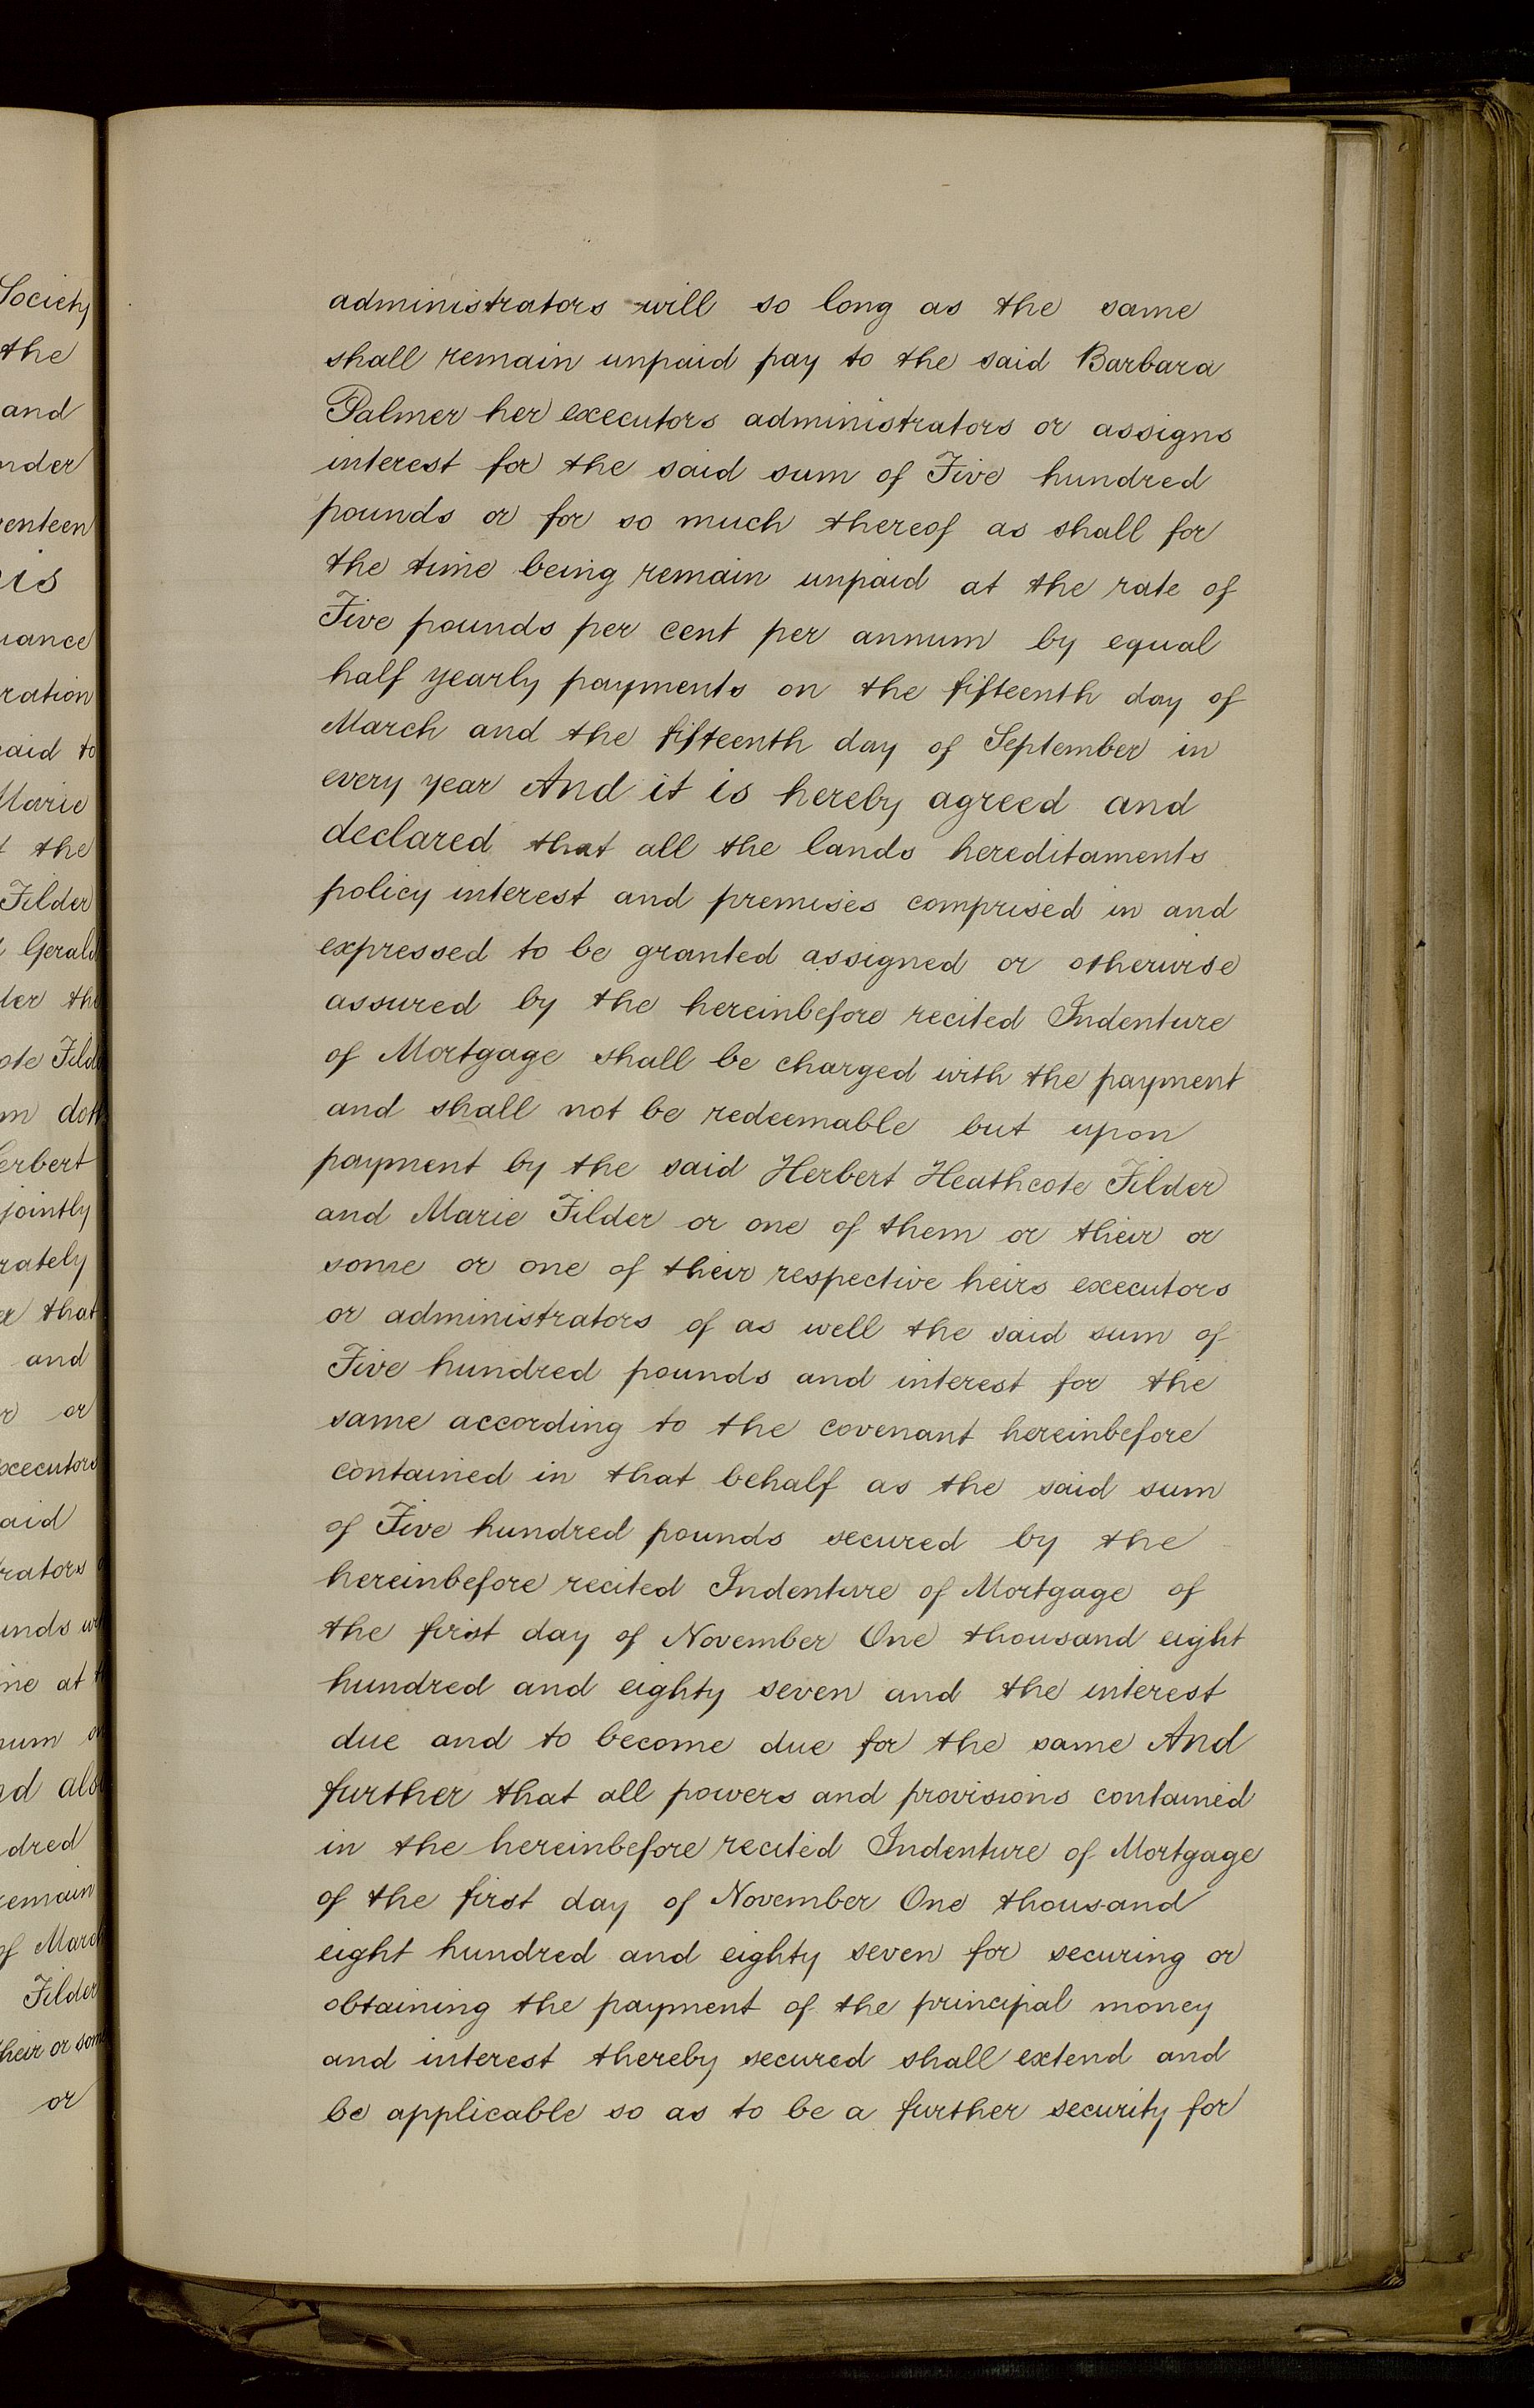 Society
the
and
is
Marie
the
Filder
Gerald
the
doth
jointly
that
and
or
executors
at
also
remain
of March
Filder
their or some
or
administrators will so long as the same
shall remain unpaid pay to the said Barbara
Palmer her executors administrators or assigns
interest for the said sum of Five hundred
pounds or for so much thereof as shall for
the time being remain unpaid at the rate of
Five pounds per cent per annum by equal
half yearly payments on the fifteenth day of
March and the fifteenth day of September in
every year And it is hereby agreed and
declared that all the lands hereditaments
policy interest and premises comprised in and
expressed to be granted assigned or otherwise
assured by the hereinbefore recited Indenture
of Mortgage shall be charged with the payment
and shall not be redeemable but upon
payment by the said Herbert Heathcote Filder
and Marie Filder or one of them or their or
some or one of their respective heirs executors
or administrators of as well the said sum of
Five hundred pounds and interest for the
same according to the covenant hereinbefore
contained in that behalf as the said sum
of Five hundred pounds secured by the
hereinbefore recited Indenture of Mortgage of
the first day of November One thousand eight
hundred and eighty seven and the interest
due and to become due for the same And
further that all powers and provisions contained
in the hereinbefore recited Indenture of Mortgage
of the first day of November One thousand
eight hundred and eighty seven for securing or
obtaining the payment of the principal money
and interest thereby secured shall extend and
be applicable so as to be a further security for